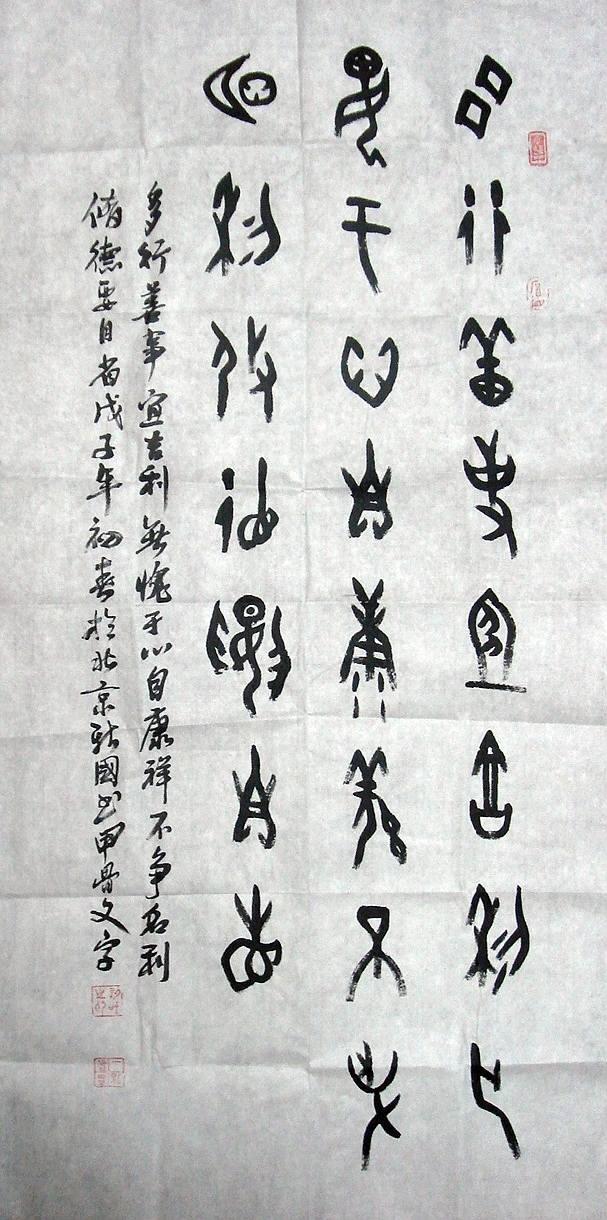 多行善事宜吉利亡
愧于心自康祥不争
名利攸德要自省
多行善事宜吉利無愧于心自康祥不争名利
脩德要自省戊子年初春於北京國书甲骨文字